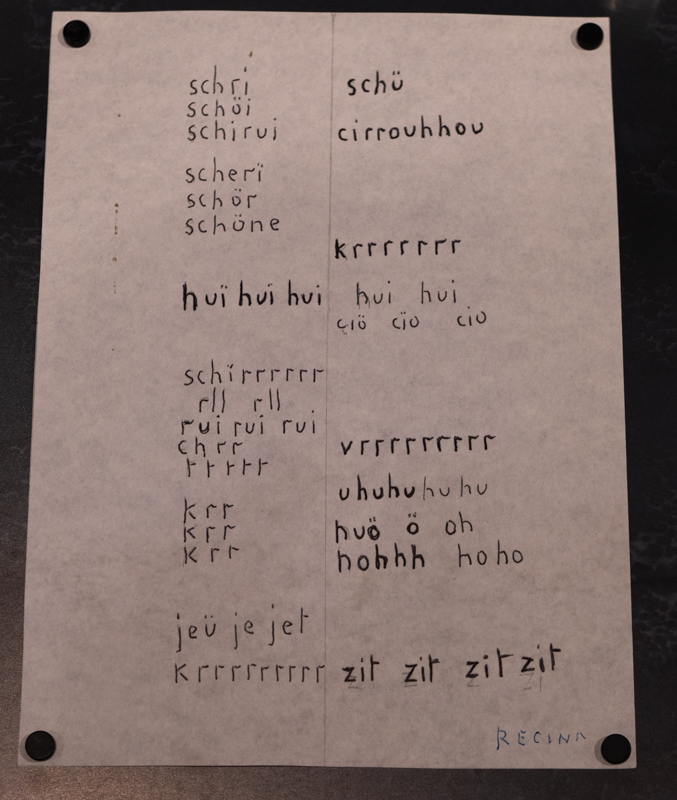 schri schü
schöi
schirui cirrouhhou
scherï
schör
schöne
krrrrrrr
huï huï hui hui hui
ciö cïo cio
schirrrrrr
rll rll
rui rui rui
chrr vrrrrrrrrr
rrrrr
uhuhuhuhu
krr
krr huö ö oh
krr hohhh hoho
jeü je jet
krrrrrrrrr zit zit zit zit
REGINA